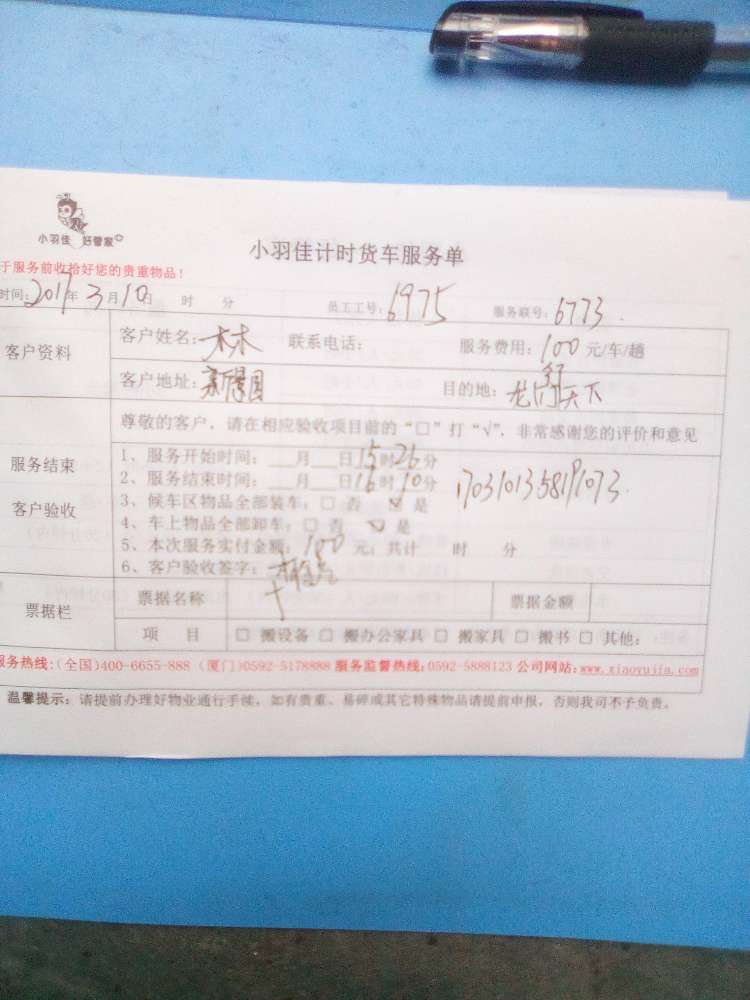 小羽佳 好管家
小羽佳计时货车服务单
于服务前收拾好您的贵重物品！
时间：2017年3月10日 时 分 员工工号：6975 服务联号：6773
客户资料
客户姓名：林 联系电话： 服务费用：100元/车/趟
客户地址：新景园 目的地：龙门天下
尊敬的客户，请在相应验收项目前的“□”打“√”，非常感谢您的评价和意见
服务结束
客户验收
1、服务开始时间：___月___日15时26分
2、服务结束时间：___月___日16时10分 1703101358191073
3、候车区物品全部装车：□ 否 ☑ 是
4、车上物品全部卸车：□ 否 ☑ 是
5、本次服务实付金额：100元；共计 时 分
6、客户验收签字：
票据栏
票据名称 票据金额
项 目 □ 搬设备 □ 搬办公家具 □ 搬家具 □ 搬书 □ 其他：
服务热线：(全国)400-6655-888 (厦门)0592-5178888 服务监督热线：0592-5888123 公司网站：www.xiaoyujia.com
温馨提示：请提前办理好物业通行手续，如有贵重、易碎或其它特殊物品请提前申报，否则我司不予负责。